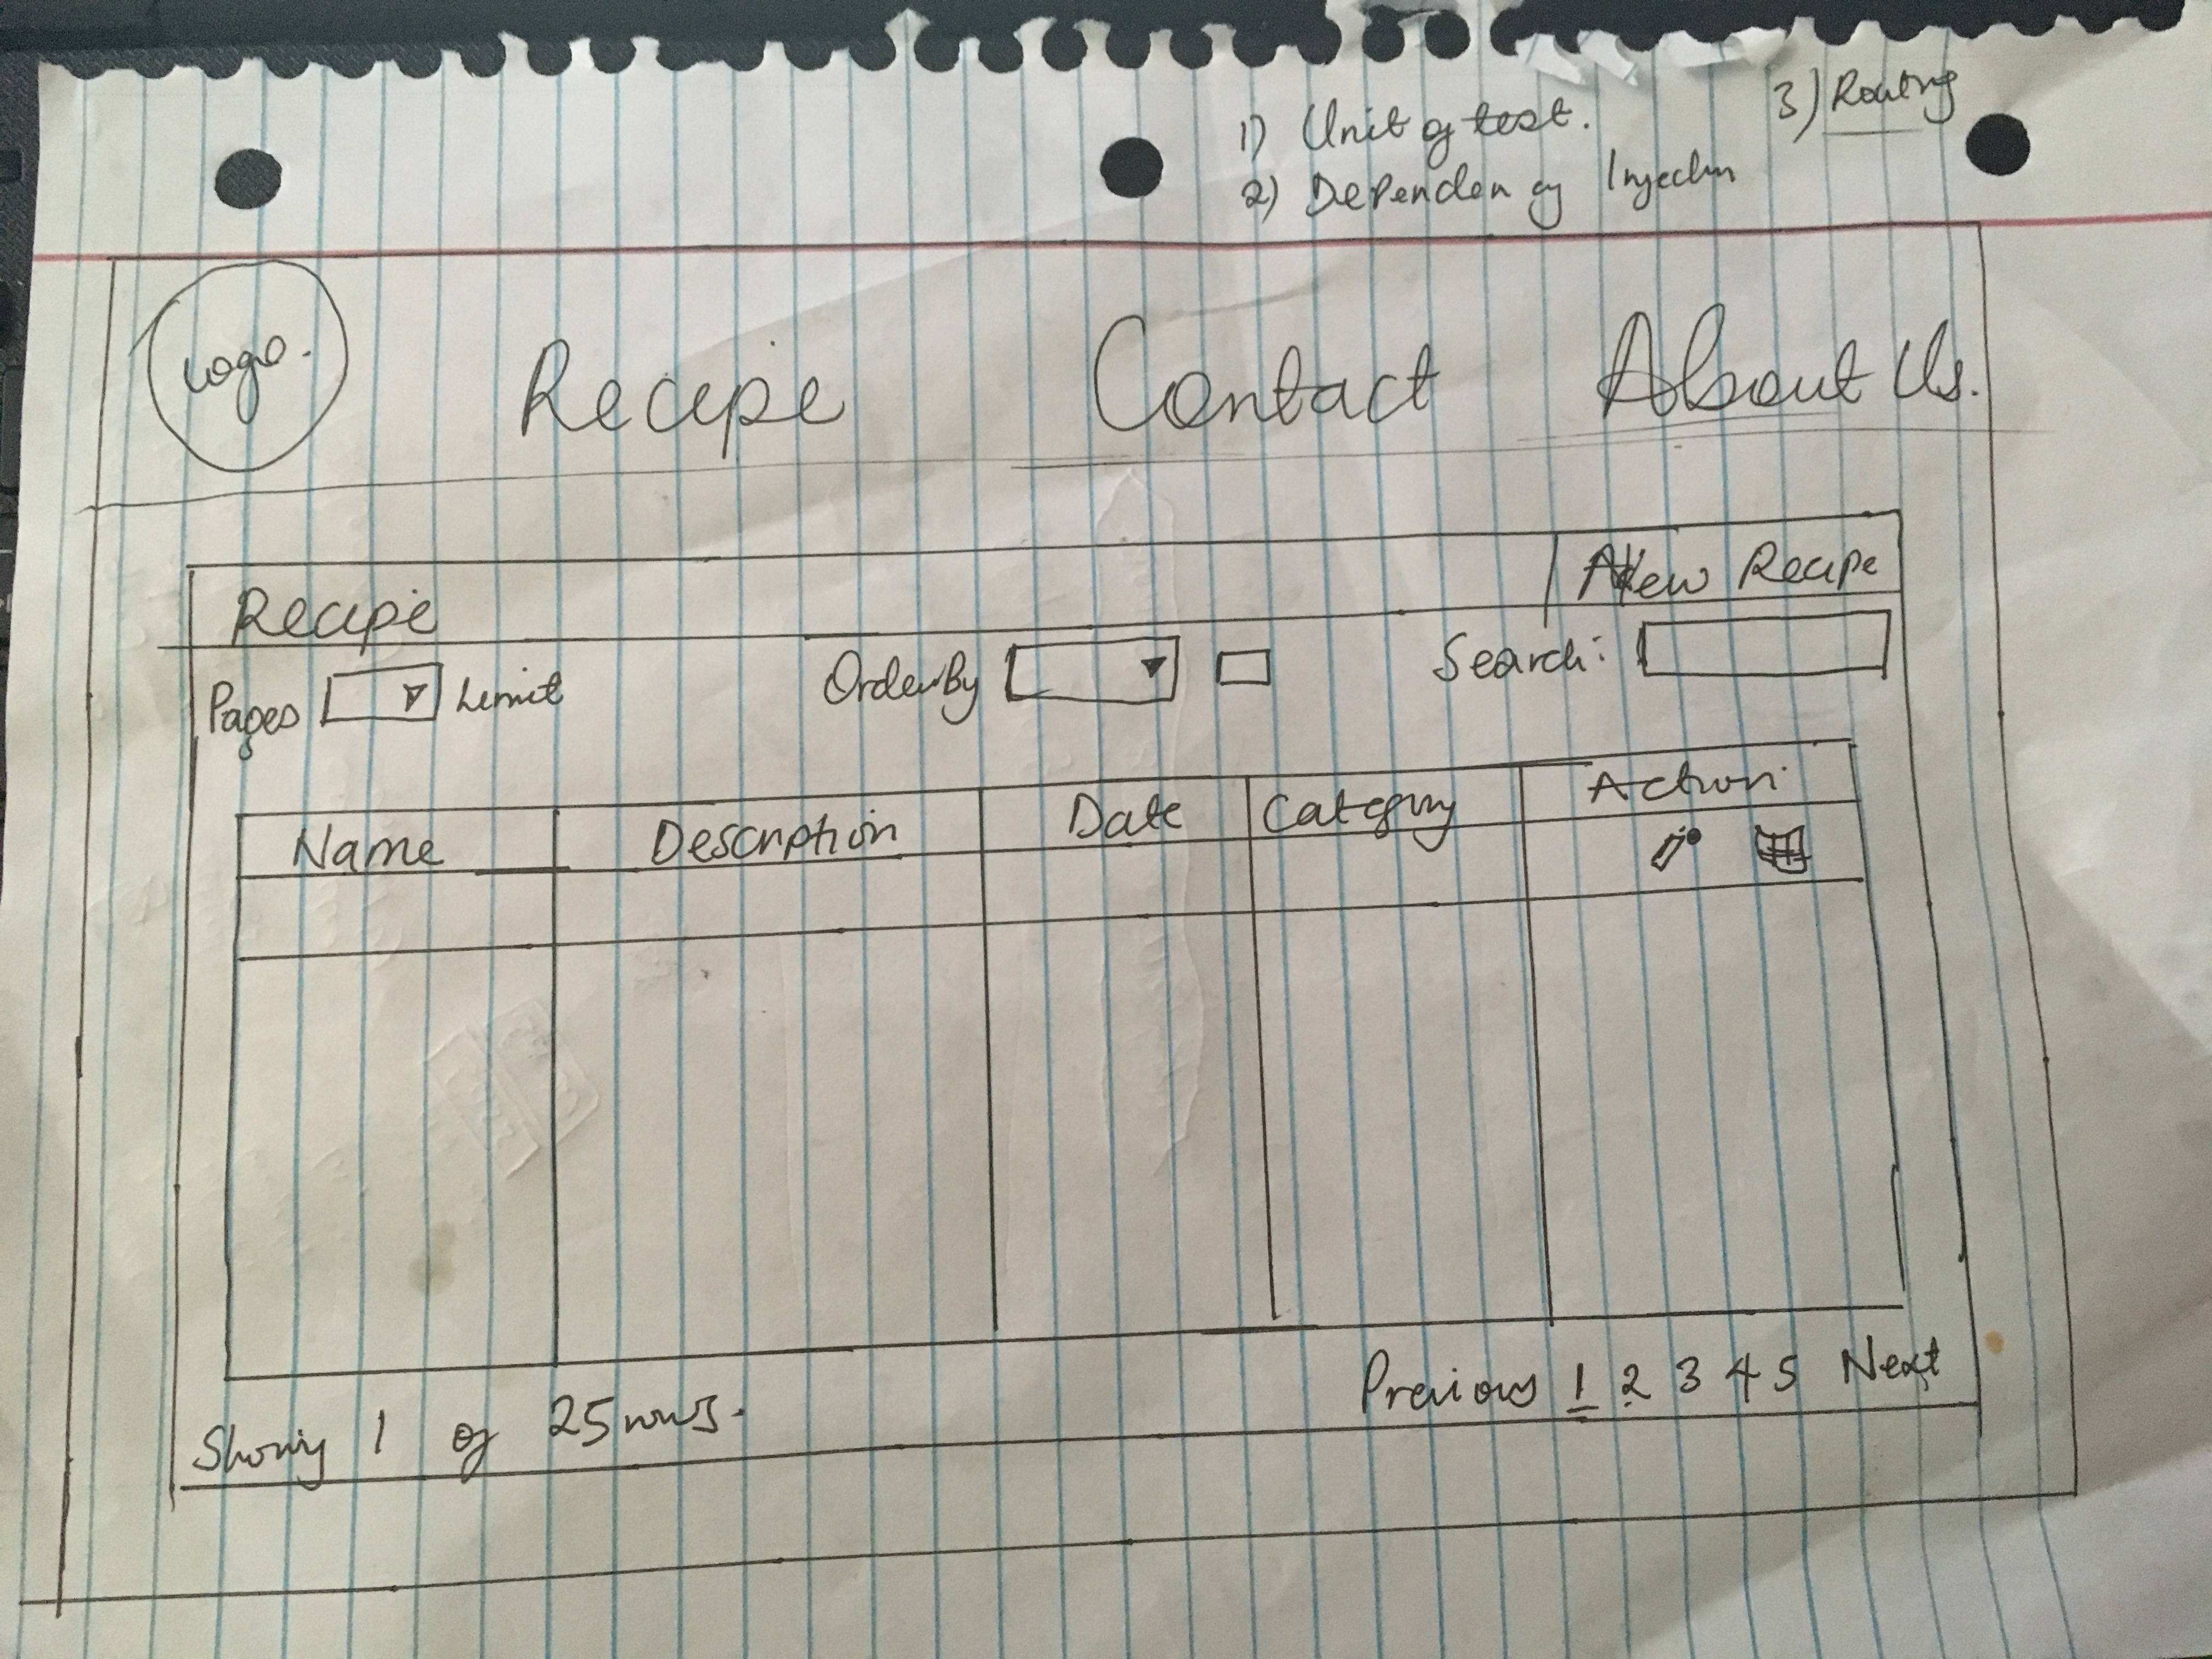 1) Unit of test.
2) Dependency Injection
3) Routing
Logo.
Recipe Contact About Us.
Recipe New Recipe
Pages Limit Orderby Search:
Name Description Date Category Action
Showing 1 of 25 rows.
Previous 1 2 3 4 5 Next